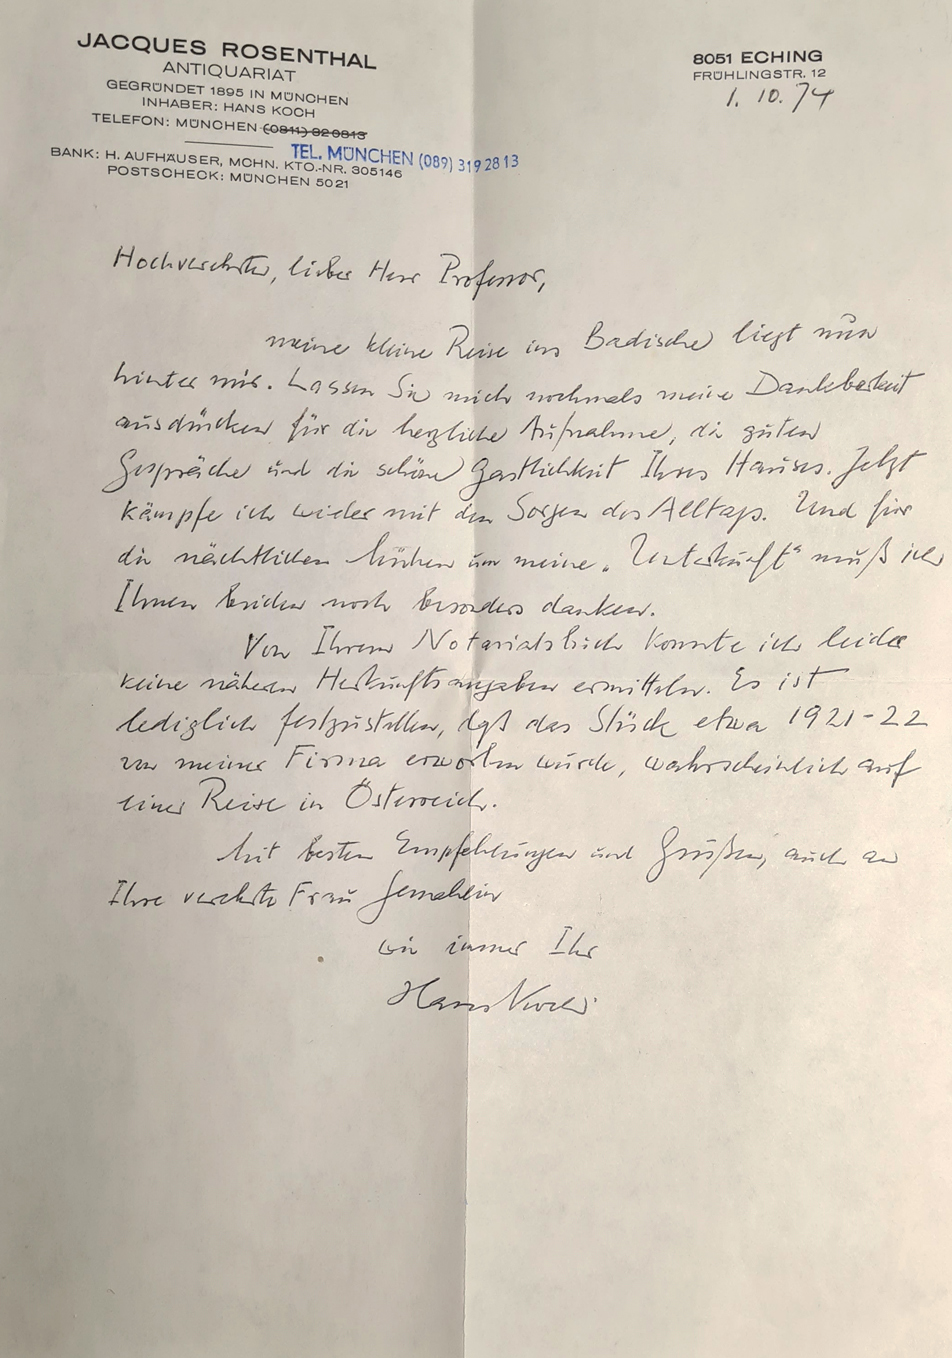 JACQUES ROSENTHAL
ANTIQUARIAT
GEGRÜNDET 1895 IN MÜNCHEN
INHABER: HANS KOCH
TELEFON: MÜNCHEN (0811) 820813
TEL. MÜNCHEN (089) 3192813
BANK: H. AUFHÄUSER, MCHN. KTO.-NR. 305146
POSTSCHECK: MÜNCHEN 5021
8051 ECHING
FRÜHLINGSTR. 12
1. 10. 74
Hochverehrter, lieber Herr Professor,
meine kleine Reise ins Badische liegt nun
hinter mir. Lassen Sie mich nochmals meine Dankbarkeit
ausdrücken für die herzliche Aufnahme, die guten
Gespräche und die schöne Gastlichkeit Ihres Hauses. Jetzt
kämpfe ich wieder mit den Sorgen des Alltags. Und für
die nächtlichen Mühen um meine „Unterkunft" muß ich
Ihnen beiden noch besonders danken.
Von Ihrem Notariatsbuch konnte ich leider
keine nähern Herkunftsangaben ermitteln. Es ist
lediglich festzustellen, daß das Stück etwa 1921-22
von meiner Firma erworben wurde, wahrscheinlich auf
einer Reise in Österreich.
Mit besten Empfehlungen und Grüßen, auch an
Ihre verehrte Frau Gemahlin
wie immer Ihr
Hans Koch